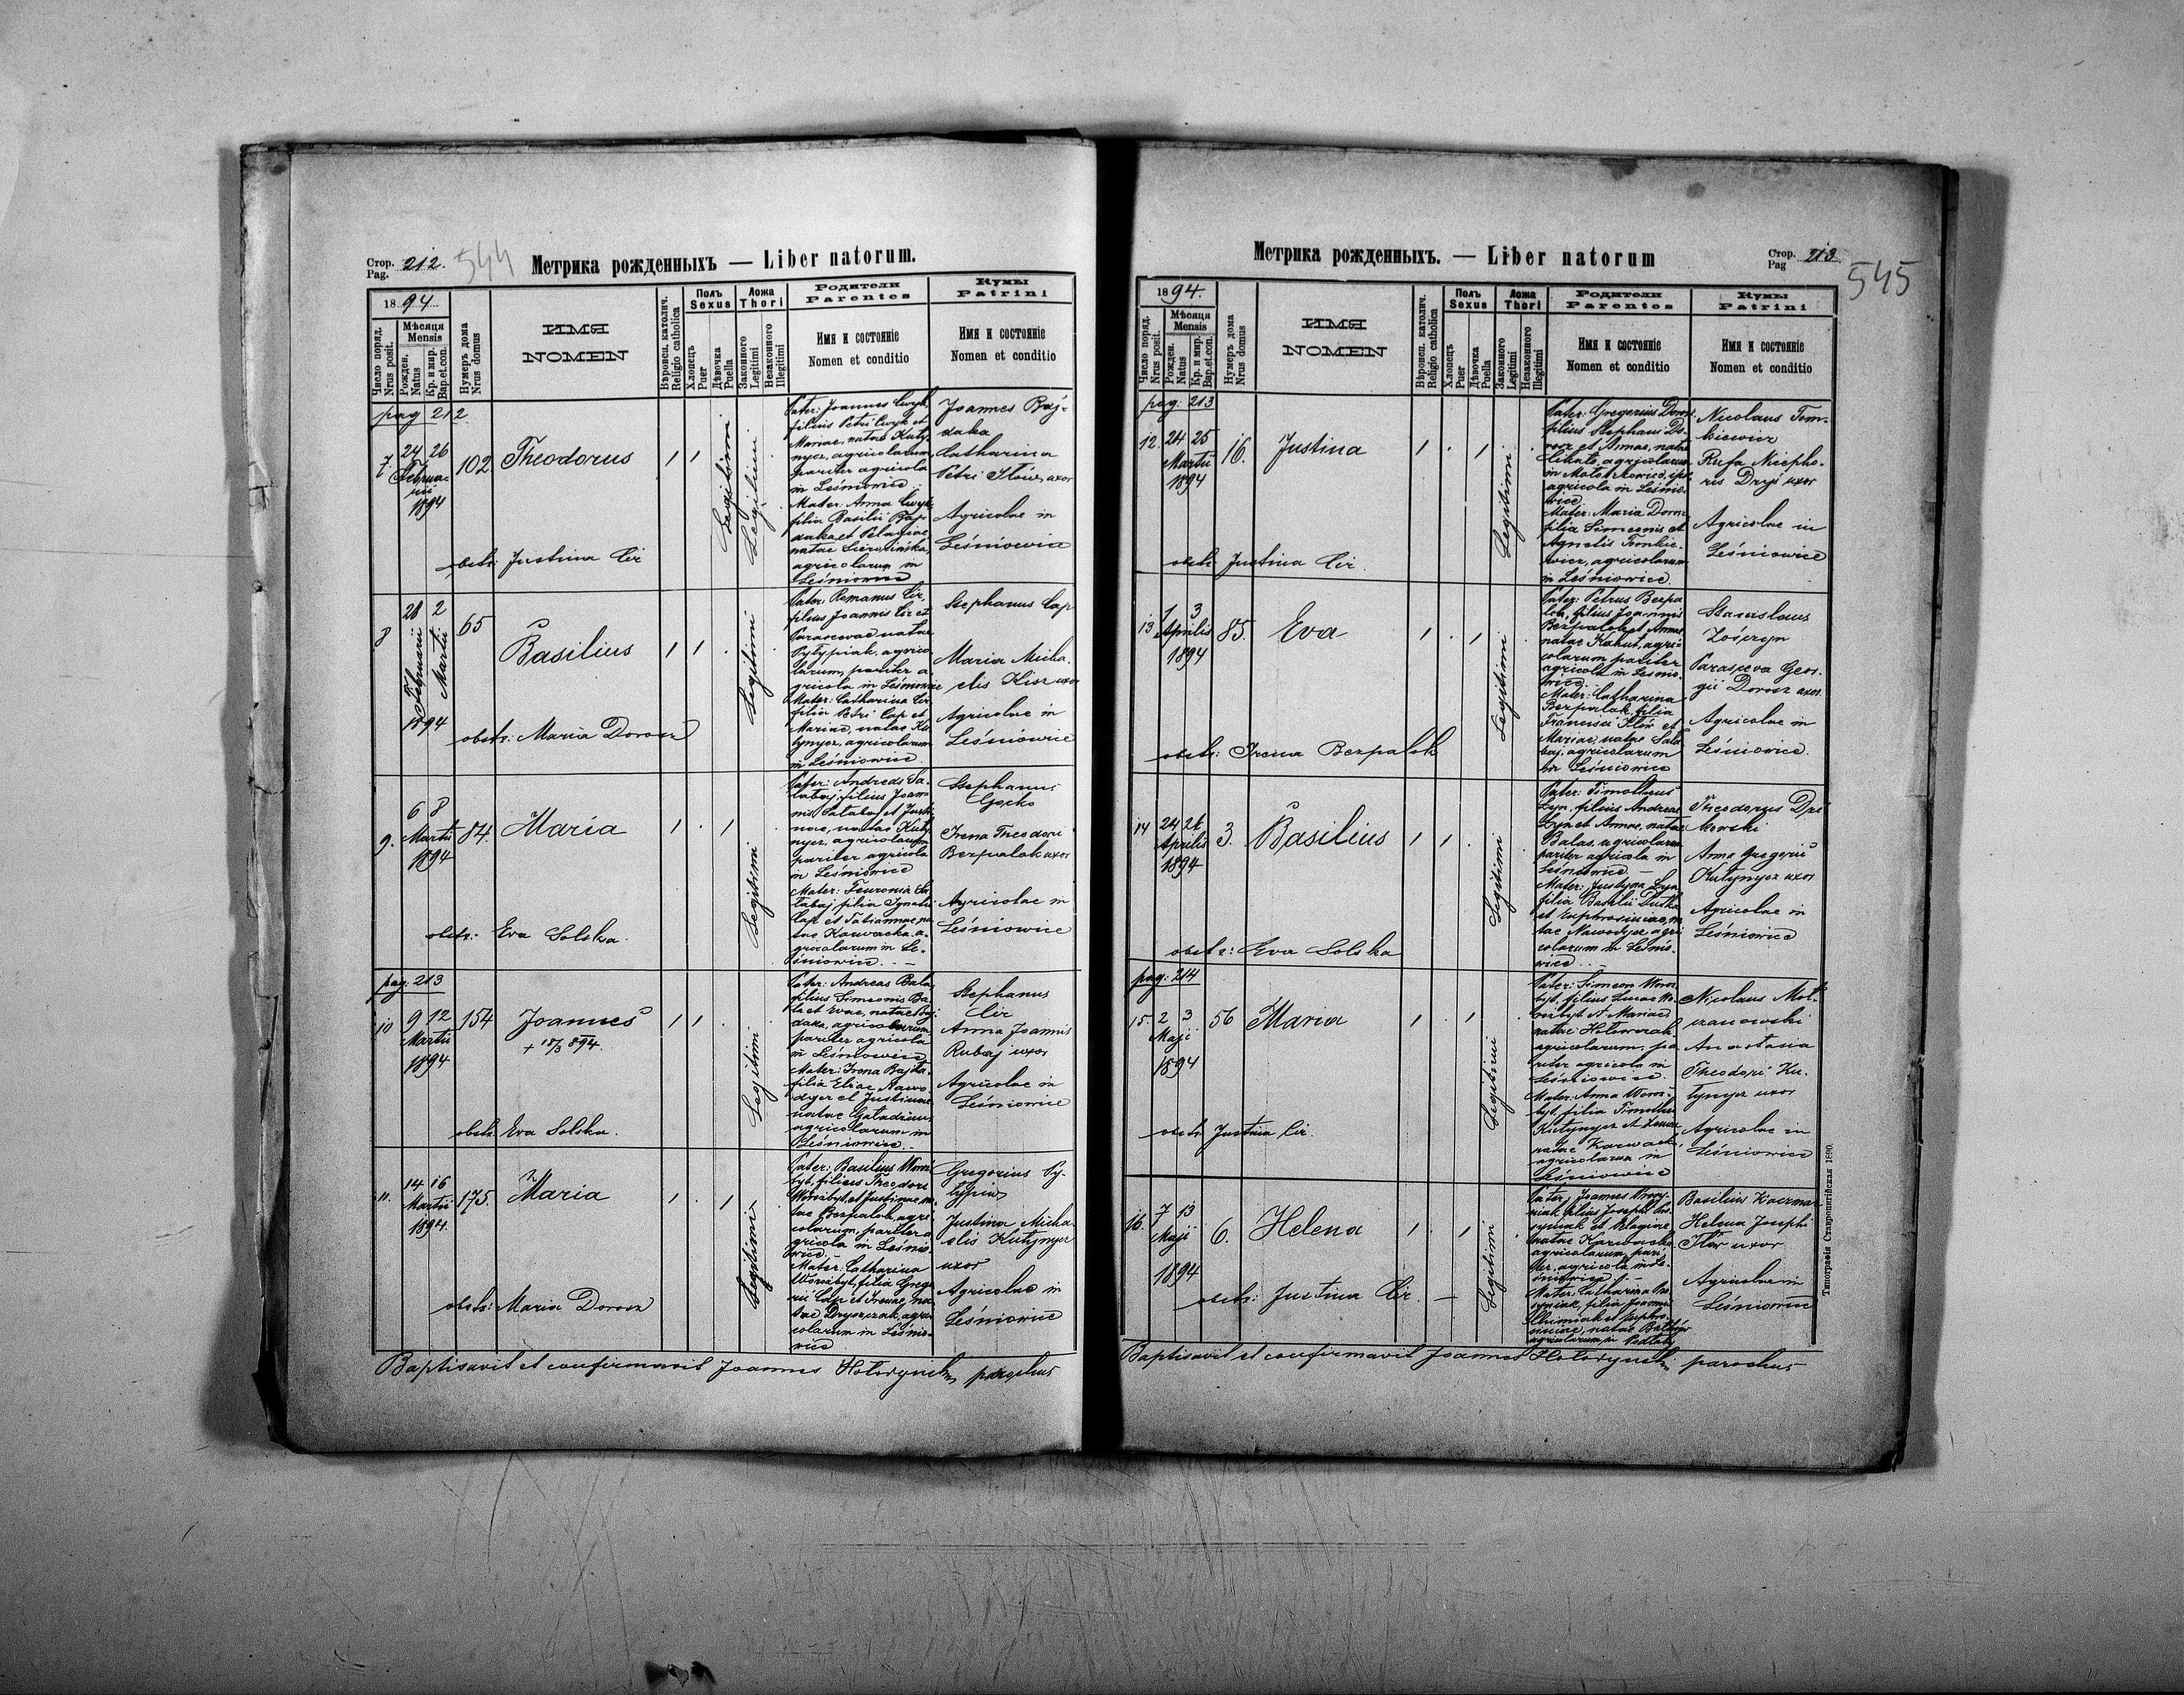 Стор. Pag. 212. 544
Метрика рожденныхъ — Liber natorum.
1894.
Число поряд. Nrus posit.
Мѣсяця Mensis
Рожден. Natus
Кр. и мир. Bap. et con.
Нумеръ дома Nrus domus
ИМЯ
NOMEN
Вѣроисп. католич. Religio catholica
Полъ Sexus
Хлопець Puer
Дѣвочка Puella
Ложа Thori
Законного Legitimi
Незаконного Illegitimi
Родители Parentes
Имя и состояніе
Nomen et conditio
Кумы Patrini
Имя и состояніе
Nomen et conditio
pag 212
7. 24 26 Februarii 1894
102
Theodorus
Legitimi
Legitimi
Pater: Joannes Cwyk,
filius Petri Cwyk et
Mariae, natae Kuty-
nycz, agricolarum,
pariter agricola
in Leśniowice.
Mater: Anna Cwyk,
filia Basilii Baj-
daka et Pelagiae
natae
agricolarum in
Leśniowice
Joannes Baj-
daka
Catharina
Petri uxor
Agricolae in
Leśniowice
obstr: Justina Cir
8 28 Februarii 2 Martii 1894
65
Basilius
Legitimi
Pater: Romanus Cir,
filius Joannis Cir et
Parascevae natae
Pytypiak, agrico-
larum, pariter a-
gricola in Leśniowice
Mater: Catharina Cir
filia Petri Cap et
Mariae, natae Ku-
tynycz, agricolarum
in Leśniowice.
Stephanus Cap
Maria Micha-
elis Kisz uxor
Agricolae in
Leśniowice
obstr: Maria Dorosz
9. 6 8 Martii 1894
84.
Maria
Legitimi
Pater: Andreas Sa-
łabaj, filius Joan-
nis Sałabaj et Justi-
nae, natae Kuty-
nycz, agricolarum
pariter agricola
in Leśniowice
Mater: Feuronia Sa-
łabaj filia Ignatii
Cap et Tatiannae, na-
tae Karwacka a-
gricolarum in Le-
śniowice. —
Stephanus
Irena Theodori
Bezpalok uxor
Agricolae in
Leśniowice
obstr: Eva Solska.
pag: 213
10 9 12 Martii 1894
154
Joannes
+ 18/3 894.
Legitimi
Pater: Andreas Bala,
filius Simeonis Ba-
la et Evae, natae Baj-
daka, agricolarum
pariter agricola
in Leśniowice
Mater: Irena
filia Eliae Nawo-
dycz et Justinae
natae
agricolarum in
Leśniowice. —
Stephanus
Cir
Anna Joannis
Rubaj uxor
Agricolae in
Leśniowice
obstr: Eva Solska.
11. 14 16 Martii 1894.
175.
Maria
Legitimi
Pater: Basilius Woroz-
byt, filius Theodori
Worozbyt, et Justinae na-
tae Bezpalok, agri-
colarum, pariter a-
gricola in Leśnio-
wice. —
Mater: Catharina
Worozbyt, filia Grego-
rii Cap et Irenae, na-
tae agri-
colarum in Leśnio-
wice
Gregorius Py-
typiw
Justina Micha-
elis Kutynycz
uxor
Agricolae in
Leśniowice
obstr: Maria Dorosz
Baptisavit et confirmavit Joannes parochus
Метрика рожденныхъ. — Liber natorum
Стор. Pag 213.
545
1894.
Число поряд. Nrus posit.
Мѣсяця Mensis
Рожден. Natus
Кр. и мир. Bap. et con.
Нумеръ дома Nrus domus
ИМЯ
NOMEN
Вѣроисп. католич. Religio catholica
Полъ Sexus
Хлопець Puer
Дѣвочка Puella
Ложа Thori
Законного Legitimi
Незаконного Illegitimi
Родители Parentes
Имя и состояніе
Nomen et conditio
Кумы Patrini
Имя и состояніе
Nomen et conditio
pag: 213
12. 24 25 Martii 1894
16.
Justina
Legitimi
Pater: Gregorius Dorosz
filius Stephani Do-
rosz et Annae, natae
agricolarum
in
agricola in Leśnio-
wice
Mater: Maria Dorosz
filia Simeonis et
Agnetis Tomkie-
wicz, agricolarum
in Leśniowice.
Nicolaus Tom-
kiewicz
Rufa Nicepho-
ris uxor
Agricolae in
Leśniowice
obstr: Justina Cir.
13 1 3 Aprilis 1894
85.
Eva
Legitimi
Pater: Petrus Bezpa-
lok, filius Joannis
Bezpalok et Annae
natae Kahut, agri-
colarum pariter
agricola in Leśnio-
wice. —
Mater: Catharina
Bezpalok, filia
Francisci Flor et
Mariae, natae Sała-
baj, agricolarum
in Leśniowice
Stanislaus
Parasceva Geor-
gii Dorosz uxor.
Agricolae in
Leśniowice.
obstr: Irena Bezpalok
14 24 26 Aprilis 1894
3.
Basilius
Legitimi
Pater: Timotheus
Łyn, filius Andreae
Łyn et Annae, natae
Balas, agricolarum
pariter agricola in
Leśniowice. —
Mater: Justyna Łyn
filia Basilii
et Euphrosinae, na-
tae Nawodycz agri-
colarum in Leśnio-
wice. —
Theodorus
Anna Gregorii
Kutynycz uxor
Agricolae in
Leśniowice
obstr: Eva Solska
pag: 214
15. 2 3 Maji 1894
56
Maria
Legitimi
Pater: Simeon Woroz-
byt, filius Lucae Wo-
rozbyt et Mariae
natae
agricolarum, pa-
riter agricola in
Leśniowice.
Mater: Anna Woroz-
byt, filia Timothei
Kutynycz et
natae Karwacka,
agricolarum in
Leśniowice
Nicolaus Moł-
czanowski
Anastasia
Theodori Ku-
tynycz uxor
Agricolae in
Leśniowice
obstr: Justina Cir.
16. 7 13 Maji 1894
6.
Helena
Legitimi
Pater: Joannes
filius Josephi
et Pelagiae
natae Karwacka
agricolarum, pari-
ter agricola in Le-
śniowice. —
Mater: Catharina
filia Joannis
et Euphro-
sinae, natae
agricolarum in
Basilius Kaczmar
Helena Josephi
Flor uxor
Agricolae in
Leśniowice
obstr: Justina Cir. —
Baptisavit et confirmavit Joannes parochus
Типографія Ставропигійская 1890.